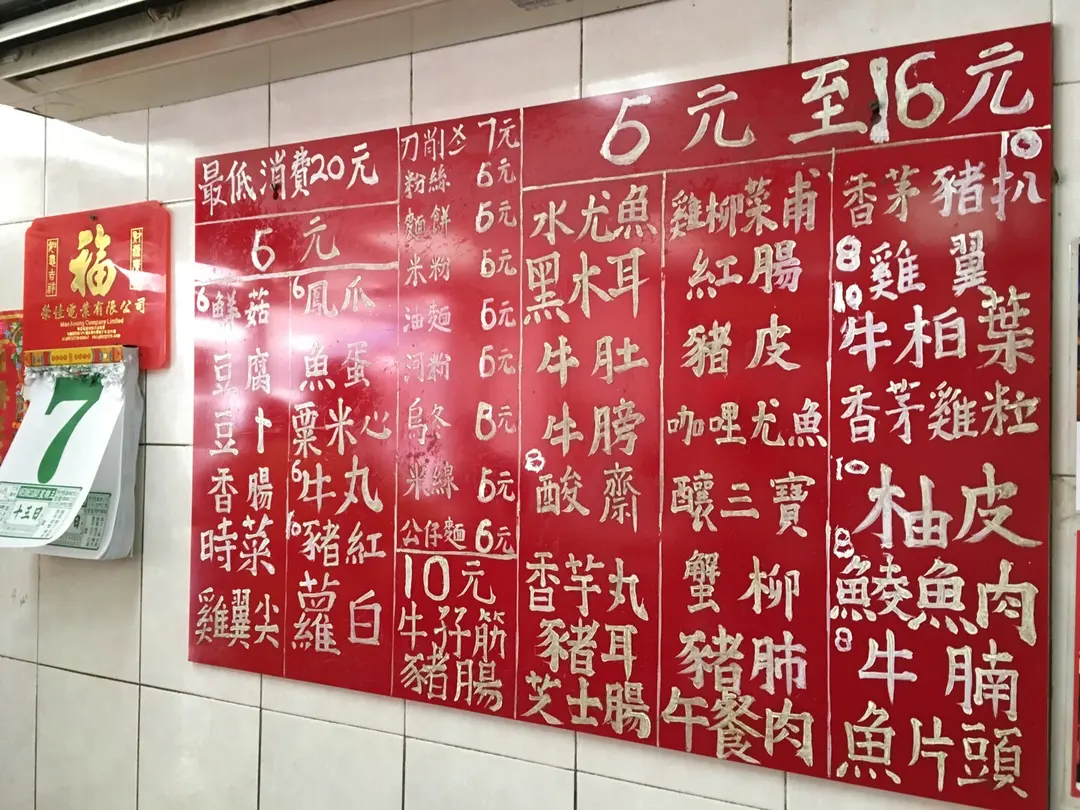 福
榮佳電業有限公司
7
十三日
最低消費20元
5元
6鮮菇
豆腐
豆卜
香腸
時菜
雞翼尖
6鳳爪
魚蛋
粟米心
6牛丸
10豬紅
蘿白
刀削 7元
粉絲 6元
麵餅 5元
米粉 5元
油麵 5元
河粉 5元
烏冬 8元
米線 6元
公仔麵 6元
10元
牛孖筋
豬腸
5元至16元
水尤魚
黑木耳
牛肚
牛膀
8酸齋
香芋丸
豬耳
芝士腸
雞柳菜甫
紅腸
豬皮
咖哩尤魚
釀三寶
蟹柳
豬肺
午餐肉
香茅豬扒10
8雞翼
10牛柏葉
香茅雞粒
10柚皮
8鯪魚肉
8牛腩
魚片頭